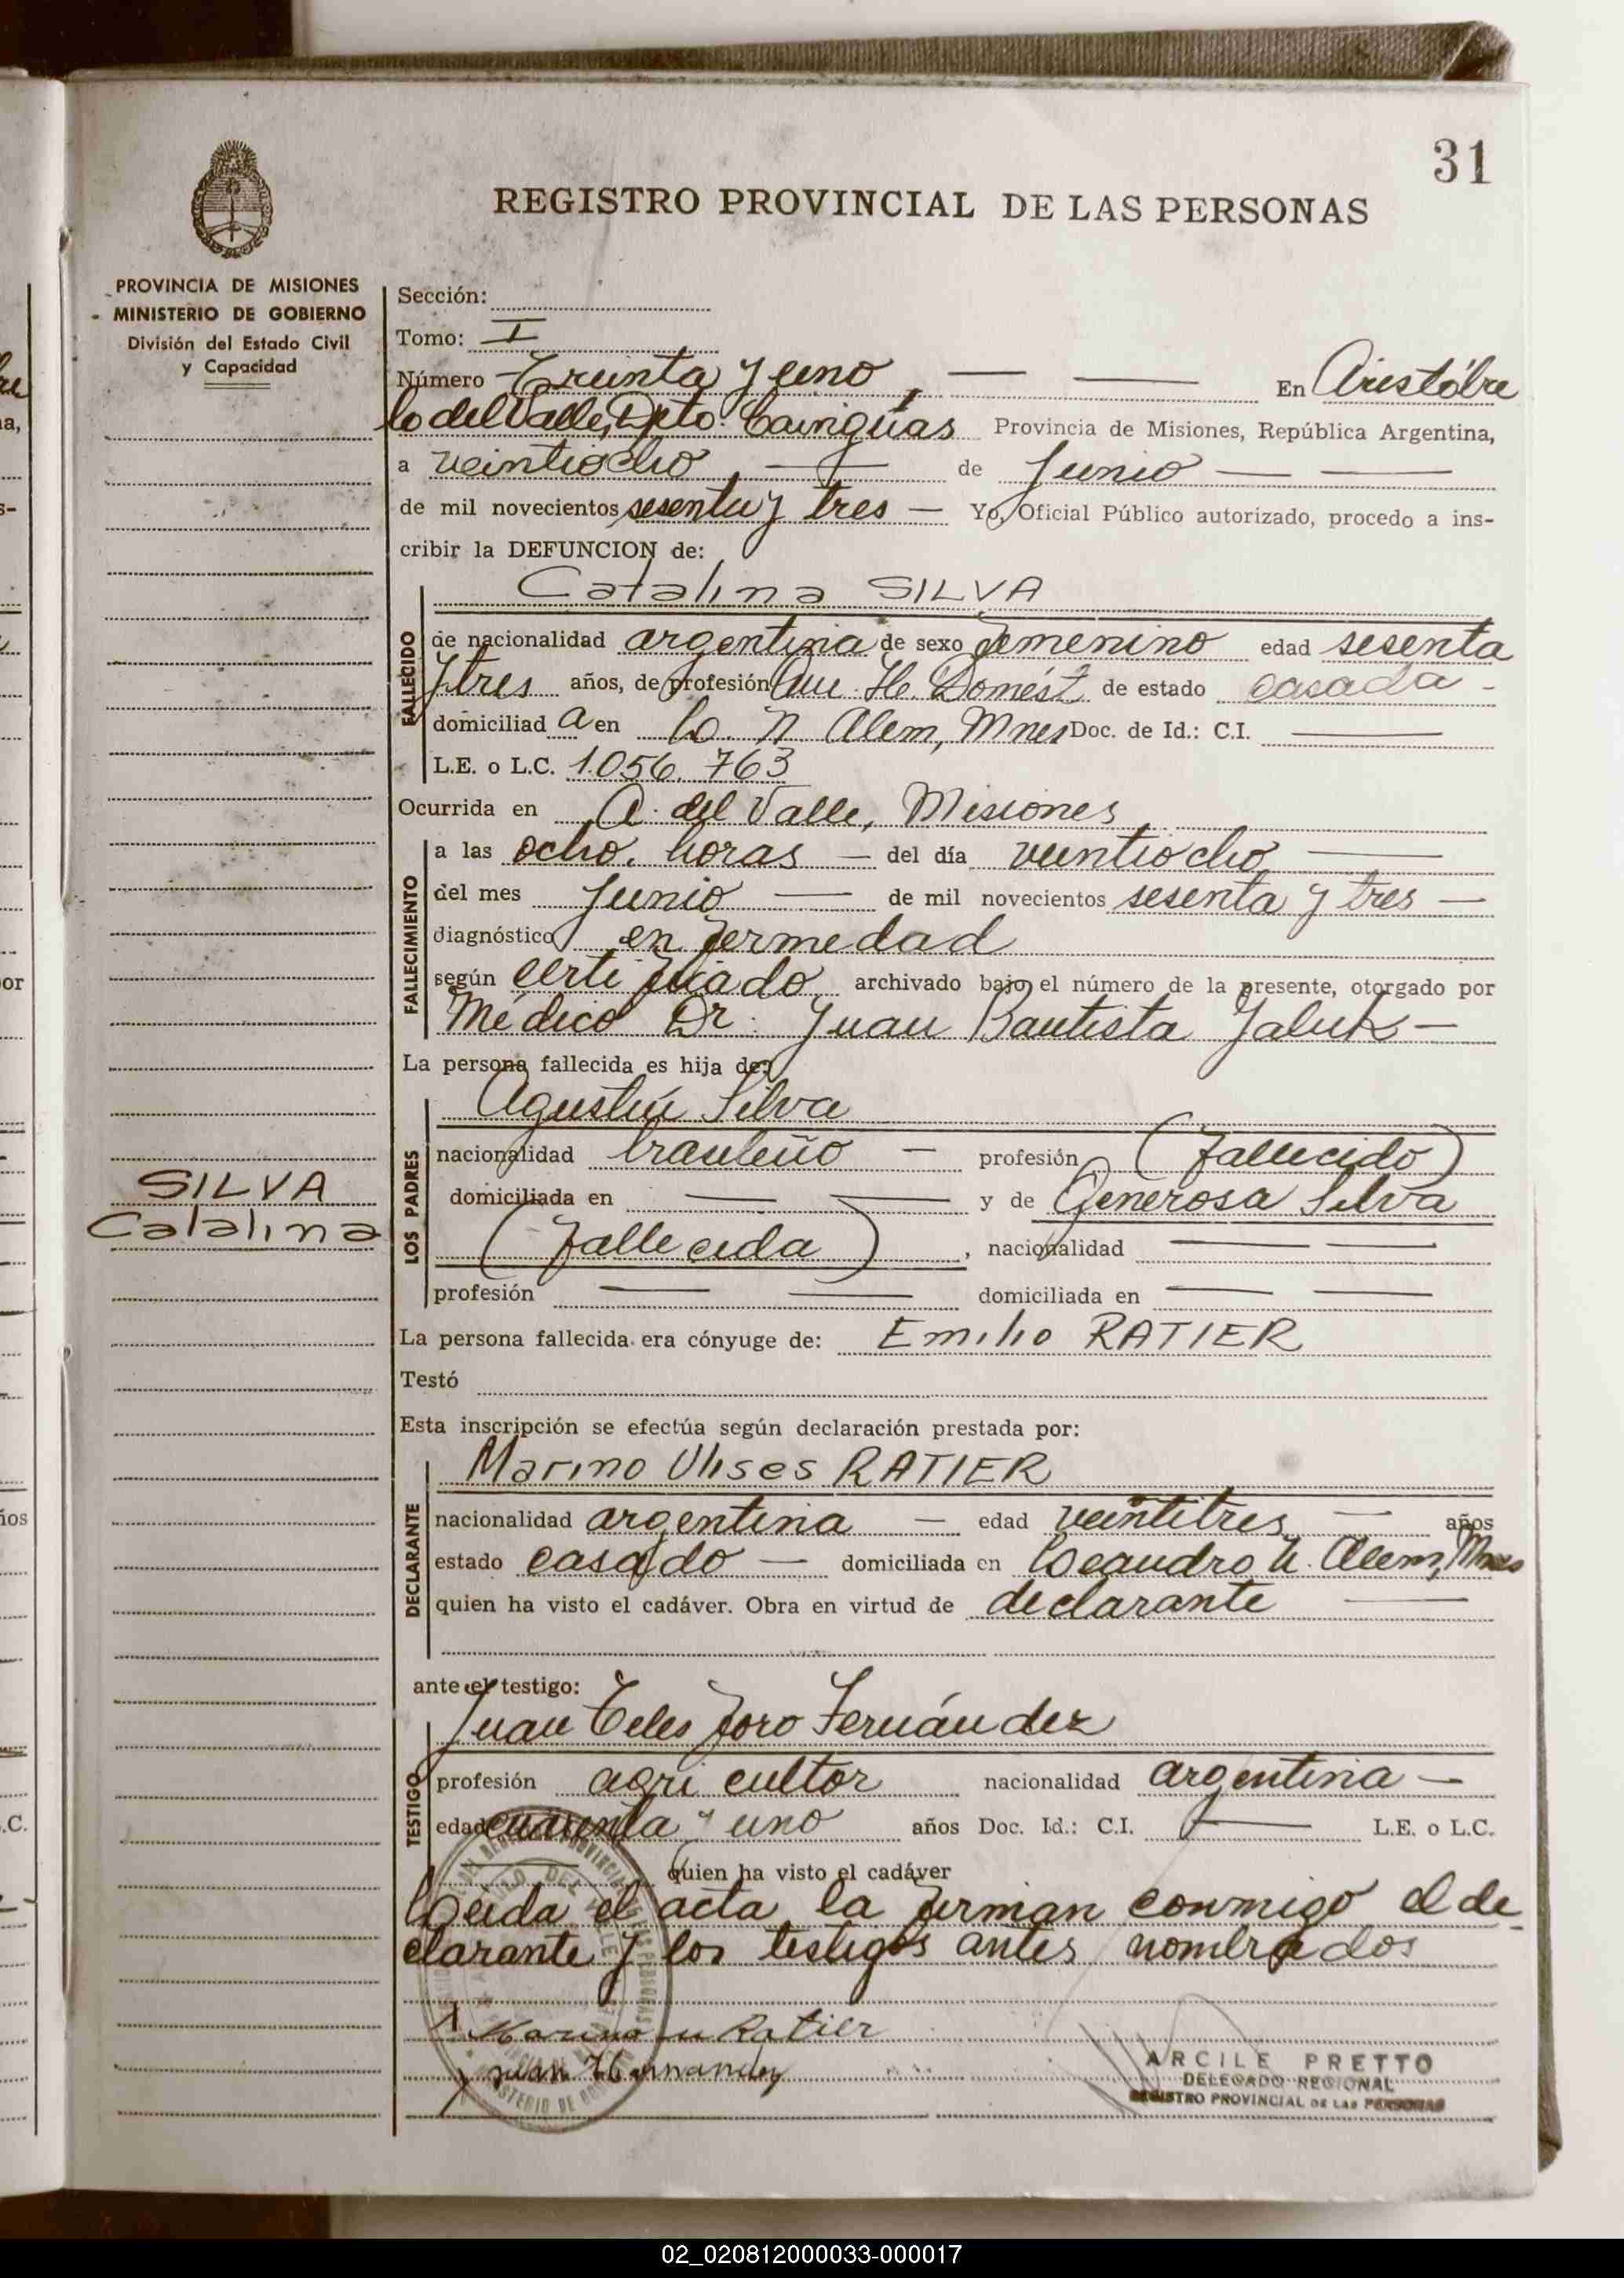 31
REGISTRO PROVINCIAL DE LAS PERSONAS
PROVINCIA DE MISIONES
MINISTERIO DE GOBIERNO
División del Estado Civil
y Capacidad
Sección:
Tomo: I
Número Treinta y uno, — — En Aristóbu
lo del Valle, Dpto. Cainguas Provincia de Misiones, República Argentina,
a veintiocho — — de Junio — —
de mil novecientos sesenta y tres — Yo, Oficial Público autorizado, procedo a ins-
cribir la DEFUNCION de:
Catalina SILVA
FALLECIDO
de nacionalidad argentina de sexo femenino edad sesenta
y tres años, de profesión Qu. H. Domést. de estado casada -
domiciliad a en L. N. Alem, Mnes Doc. de Id.: C.I. —
L.E. o L.C. 1.056.763
Ocurrida en A. del Valle, Misiones
FALLECIMIENTO
a las ocho, horas — del día veintiocho —
del mes Junio — de mil novecientos sesenta y tres —
diagnóstico enfermedad
según certificado archivado bajo el número de la presente, otorgado por
Médico Dr. Juan Bautista Jaluk —
La persona fallecida es hija de:
LOS PADRES
Agustín Silva
nacionalidad brasileño — profesión (fallecido)
domiciliada en — — y de Generosa Silva
(fallecida), nacionalidad — —
profesión — — domiciliada en — —
SILVA
Catalina
La persona fallecida era cónyuge de: Emilio RATIER
Testó
Esta inscripción se efectúa según declaración prestada por:
DECLARANTE
Marino Ulises RATIER
nacionalidad argentina — edad veintitres — años
estado casado — domiciliada en Leandro N. Alem, Mnes
quien ha visto el cadáver. Obra en virtud de declarante —
ante el testigo:
TESTIGO
Juan Telesforo Fernández
profesión agricultor nacionalidad argentina —
edad cuarenta y uno años Doc. Id.: C.I. — L.E. o L.C.
— quien ha visto el cadáver
Leída el acta la firman conmigo el de-
clarante y los testigos antes nombrados
Marino u Ratier
Juan Hernandez
ARCILE PRETTO
DELEGADO REGIONAL
REGISTRO PROVINCIAL DE LAS PERSONAS
02_020812000033-000017